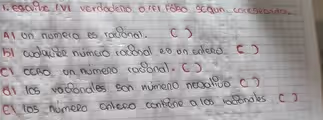 1. escribe (V) verdadero o (F) falso según corresponda.
A) un numero es racional. ( )
b) cualquier numero racional es un entero. ( )
C) cero un numero racional. ( )
d) los racionales son numero negativo ( )
e) los numero entero contiene a los racionales ( )